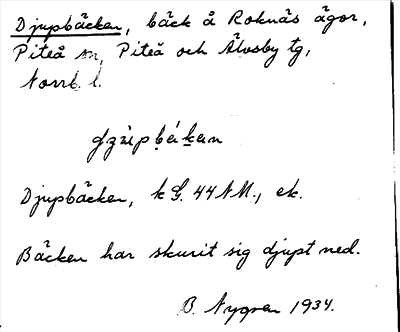 Djupbäcken, bäck å Roknäs ägor,
Piteå sn, Piteå och Älvsby tg,
Norrb. l.
Djupbäcken, k G. 44 NM., ek.
Bäcken har skurit sig djupt ned.
B. Nygren 1934.